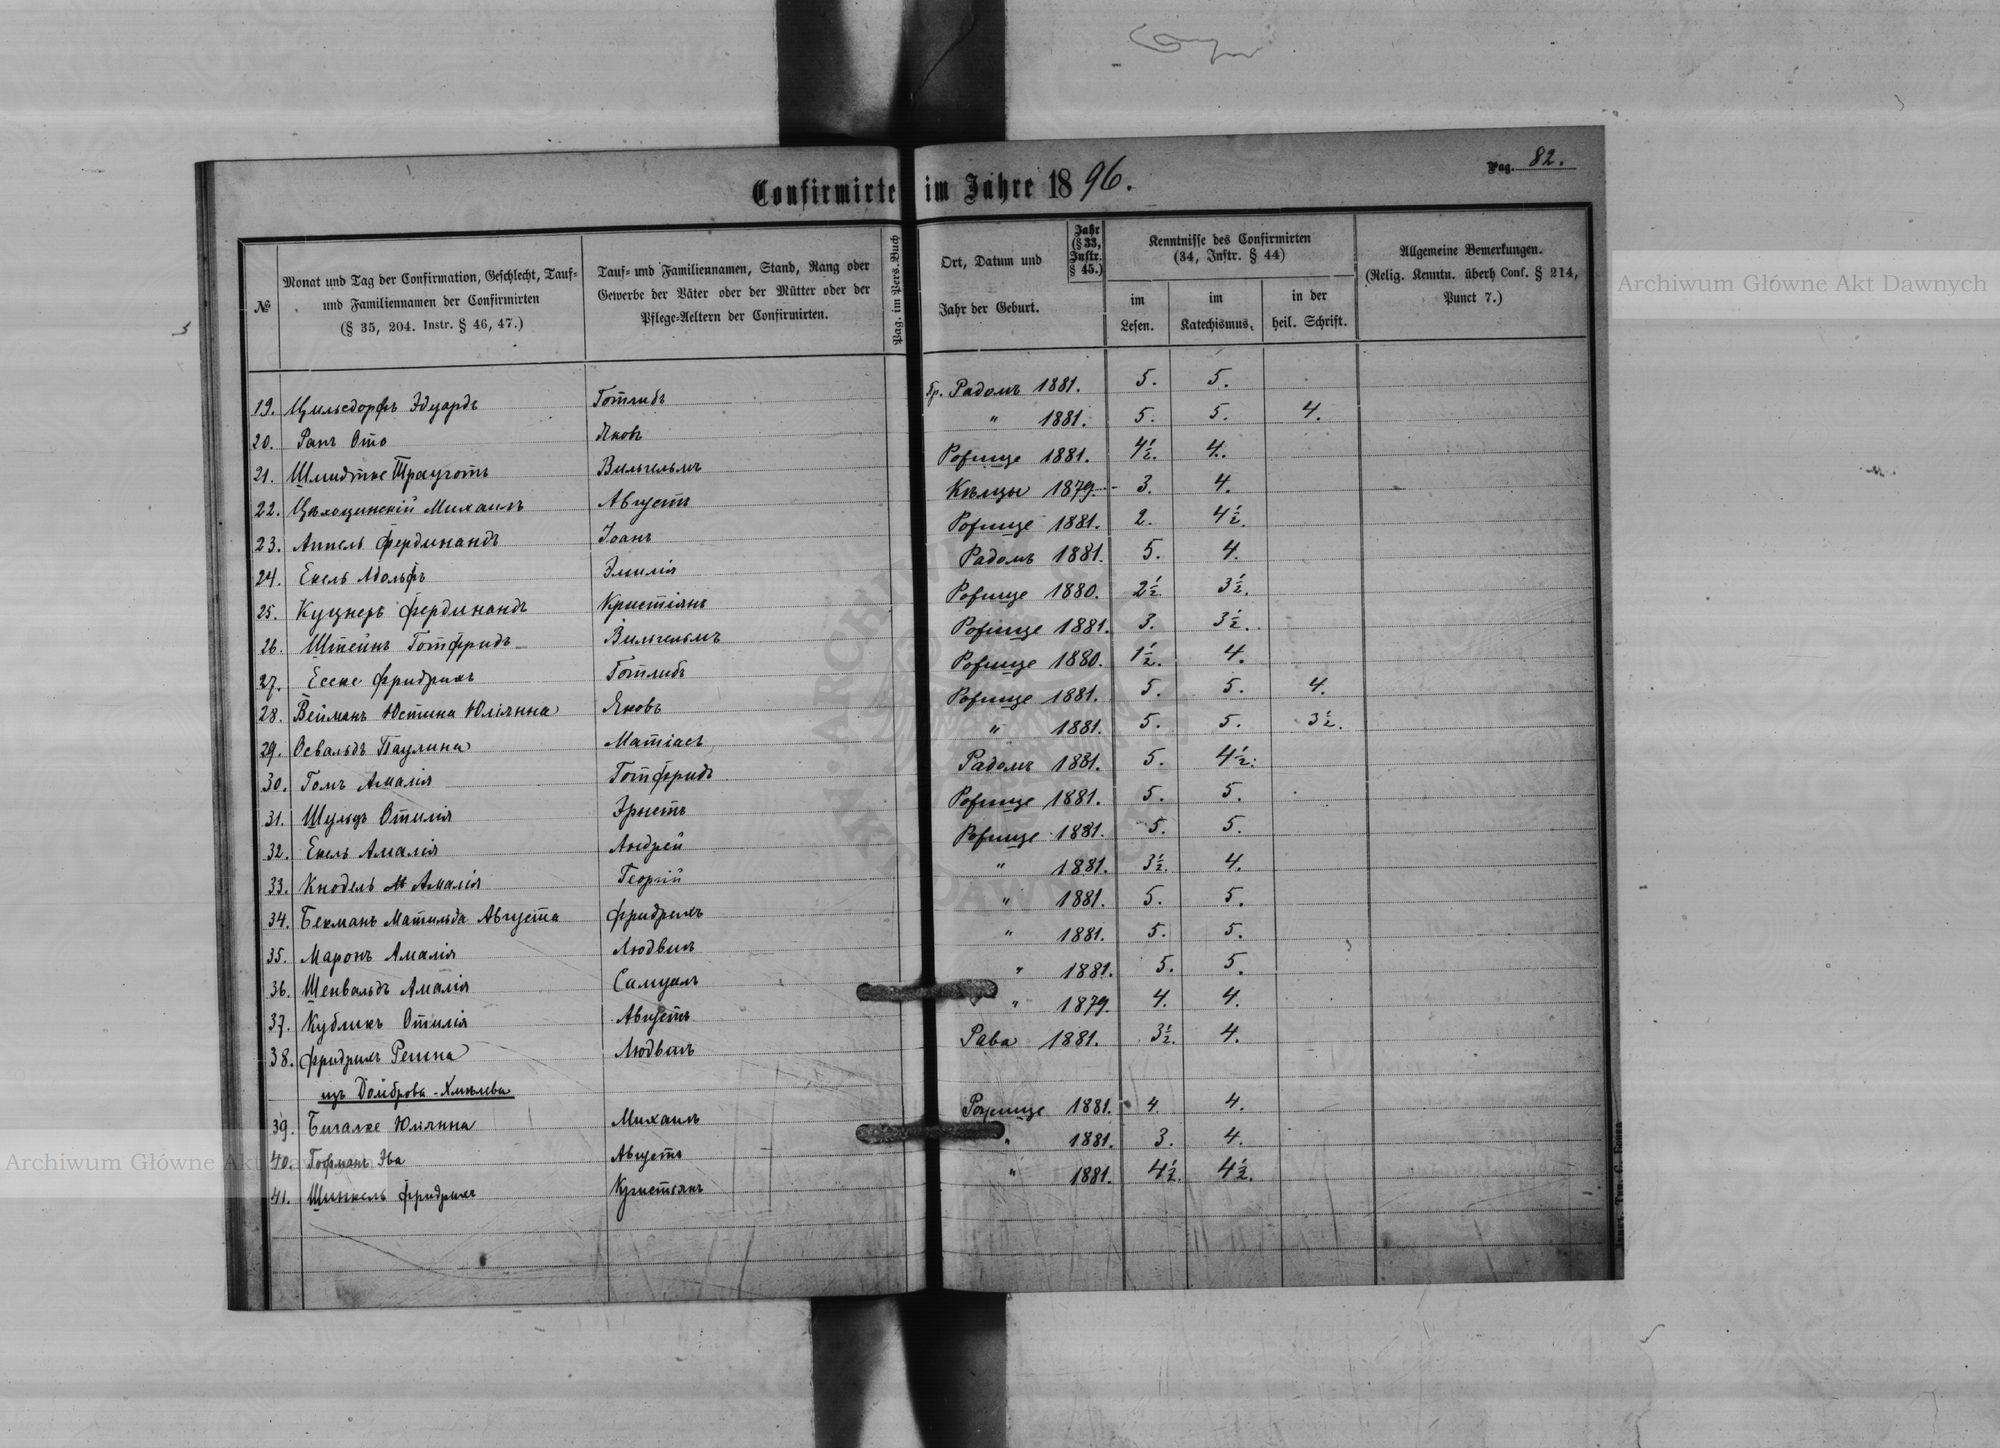 Confirmirte im Jahre 1896.
Pag. 82.
№
Monat und Tag der Confirmation, Geschlecht, Tauf-
und Familiennamen der Confirmirten
(§ 35, 204. Instr. § 46, 47.)
Tauf- und Familiennamen, Stand, Rang oder
Gewerbe der Väter oder der Mütter oder der
Pflege-Aeltern der Confirmirten.
Pag. im Pers. Buch
Ort, Datum und
Jahr der Geburt.
Jahr
(§ 33,
Instr.
§ 45.)
Kenntnisse des Confirmirten
(34, Instr. § 44)
im
Lesen.
im
Katechismus.
in der
heil. Schrift.
Allgemeine Bemerkungen.
(Relig. Kenntn. überh Conf. § 214,
Punct 7.)
19. Цильсдорфъ Эдуардъ Готлибъ гр. Радомъ 1881. 5. 5.
20. Рапъ Ото Яковъ " 1881. 5. 5. 4.
21. Шмидтке Трауготъ Вильгельмъ Рожище 1881. 4½. 4.
22. Цѣхоцинскій Михаилъ Августъ Кѣльцы 1879. 3. 4.
23. Аппель Фердинандъ Іоанъ Рожище 1881. 2. 4½.
24. Екель Адольфъ Эмилія Радомъ 1881. 5. 4.
25. Куцнеръ Фердинандъ Христіянъ Рожище 1880. 2½. 3½.
26. Штейнъ Готфридъ Вильгельмъ Рожище 1881. 3. 3½.
27. Еске Фридрихъ Готлибъ Рожище 1880. 1½. 4.
28. Вейманъ Юстина Юліянна Яковъ Рожище 1881. 5. 5. 4.
29. Освальдъ Паулина Матіасъ " 1881. 5. 5. 3½.
30. Гомъ Амалія Готфридъ Радомъ 1881. 5. 4½.
31. Шульцъ Отилія Эрнстъ Рожище 1881. 5. 5.
32. Екель Амалія Андрей Рожище 1881. 5. 5.
33. Кнодель Амалія Георгій " 1881. 3½. 4.
34. Бекманъ Матильда Августа Фридрихъ " 1881. 5. 5.
35. Маронъ Амалія Людвикъ " 1881. 5. 5.
36. Шенвальдъ Амалія Самуилъ " 1881. 5. 5.
37. Кубликъ Отилія Августъ " 1879. 4. 4.
38. Фридрихъ Регина Людвикъ Рава 1881. 3½. 4.
изъ Домброва-Хмѣлева
39. Бигалке Юлянна Михаилъ Рожище 1881. 4. 4.
40. Гофманъ Эва Августъ " 1881. 3. 4.
41. Шинкель Фридрихъ Христіянъ " 1881. 4½. 4½.
Archiwum Główne Akt Dawnych
Archiwum Główne Akt Dawnych